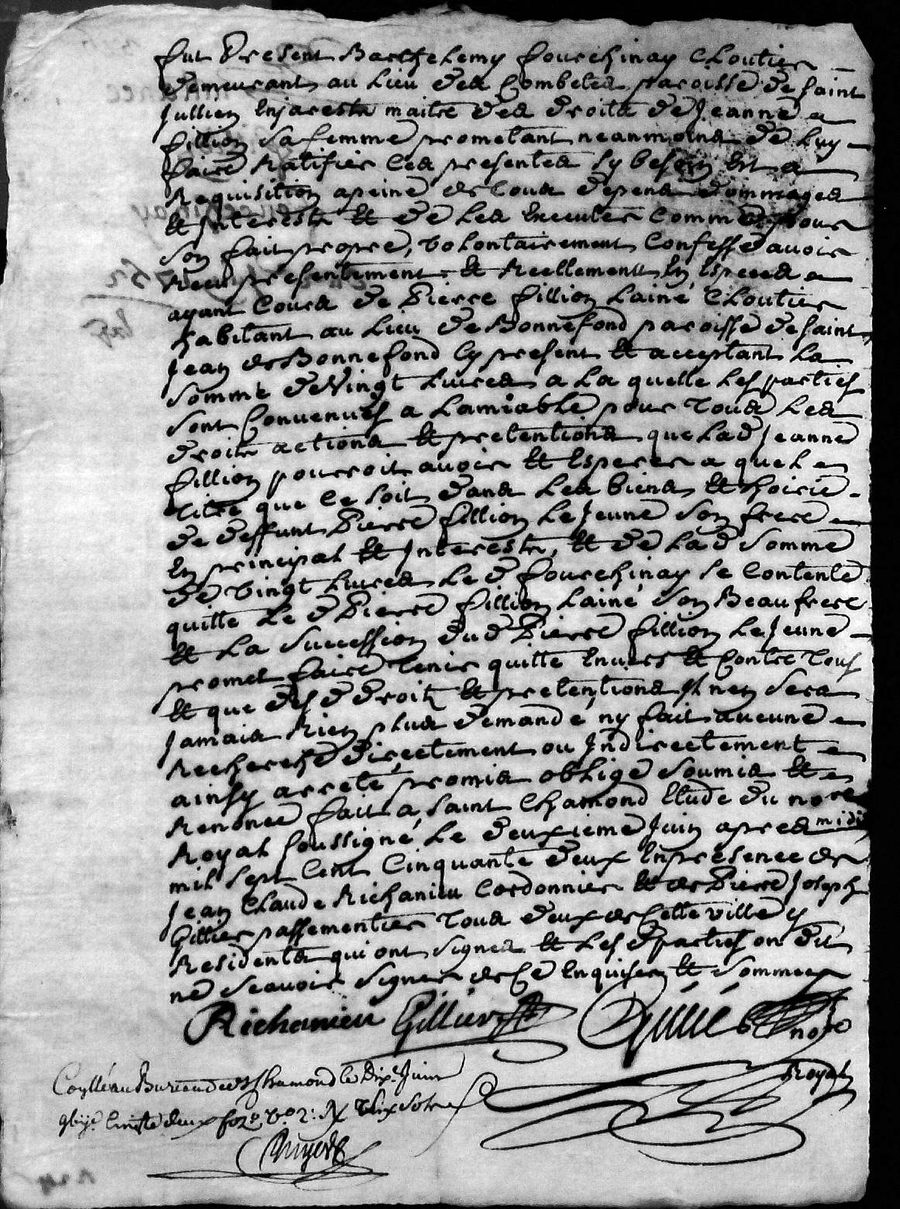 fut Present Barthelemy fourchinay Cloutier
demeurant au Lieu des Combeles paroisse de saint
Jullien Enjarest maitre des droits de Jeanne
fillion sa femme prometant neanmoins de luy
faire Ratifier Les presentes sy besoin Est a
Requisition apeine de tous depens dommages
Et Interests Et de Les Executer Comme pour
son fait propre, volontairement Confesse avoir
Receu presentement Et Reellement En Especes
ayant Cours de Pierre fillion Lainé Cloutier
habitant au Lieu de Bonnefond paroisse de saint
Jean de Bonnefond Cy present Et acceptant La
somme de Vingt Livres a La quelle Les parties
sont Convenues a Lamiable pour tous Les
droits actions Et pretentions que Lad Jeanne
fillion pourroit avoir Et Esperer a quel
titre que Ce soit dans Les biens Et hoirie
de deffunt Pierre fillion Le Jeune son frere
En principal Et Interests, Et de Lad somme
de Vingt Livres Le d fourchinay se Contente
quitte Le d Pierre fillion Lainé son Beaufrere
Et La succession dud Pierre fillion Le Jeune
promet faire tenir quitte Envers Et Contre tous
Et que des d droits Et pretentions Il nen sera
Jamais Rien plus demandé ny fait aucune
Recherche directement ou Indirectement
ainsy arreté, promis obligé soumis Et
Renoncé fait a saint Chamond Etude du nore
Royal soussigné Le deuxieme Juin apres midi
mil sept Cent Cinquante deux En presence de
Jean Claude Richanieu Cordonnier Et de Pierre Joseph
Gillier passementier tous deux de Cette ville y
Residents qui ont signés Et Les d parties on dit
ne scavoir signer de Ce Enquises Et sommees
Richanieu Gillier
nore
Royal
Collé au Bureau de St Chamond le Dix Juin